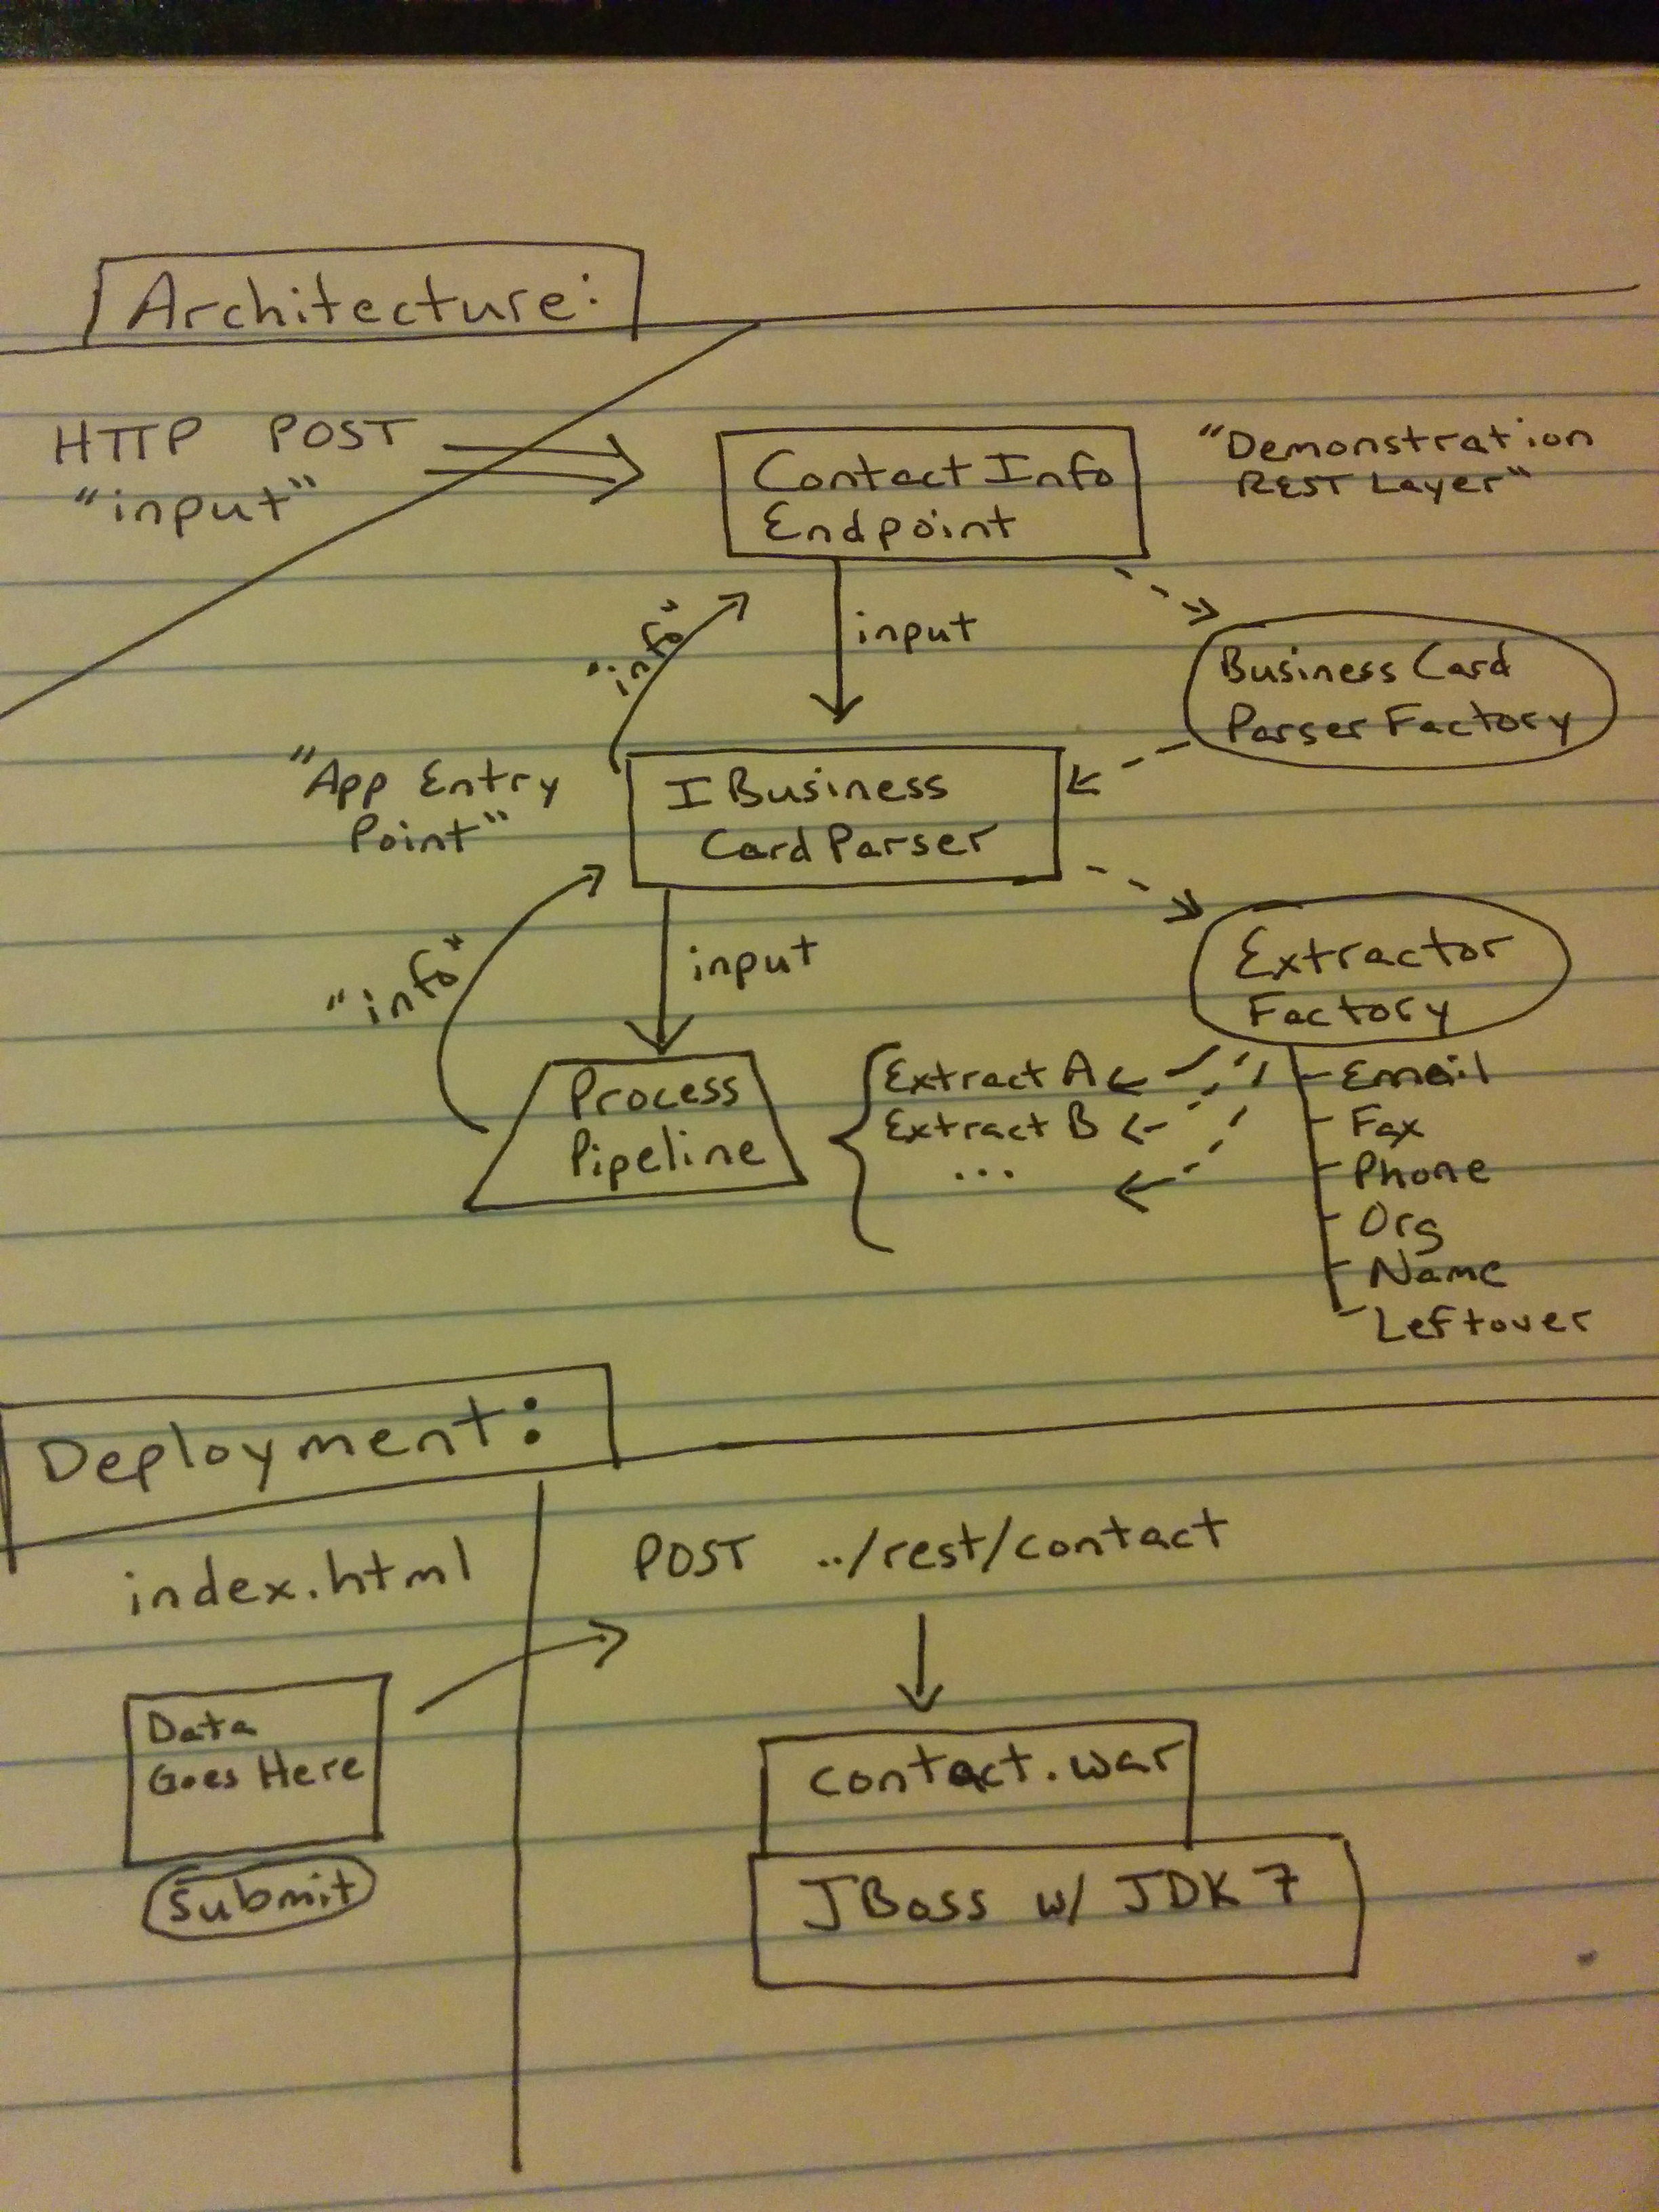 Architecture:
HTTP POST
"input"
Contact Info
Endpoint
"Demonstration
REST Layer"
"info"
input
Business Card
Parser Factory
"App Entry
Point"
I Business
Card Parser
"info"
input
Extractor
Factory
Process
Pipeline
Extract A
Extract B
...
Email
Fax
Phone
Org
Name
Leftover
Deployment:
index.html
POST ../rest/contact
Data
Goes Here
Submit
contact.war
JBoss w/ JDK 7